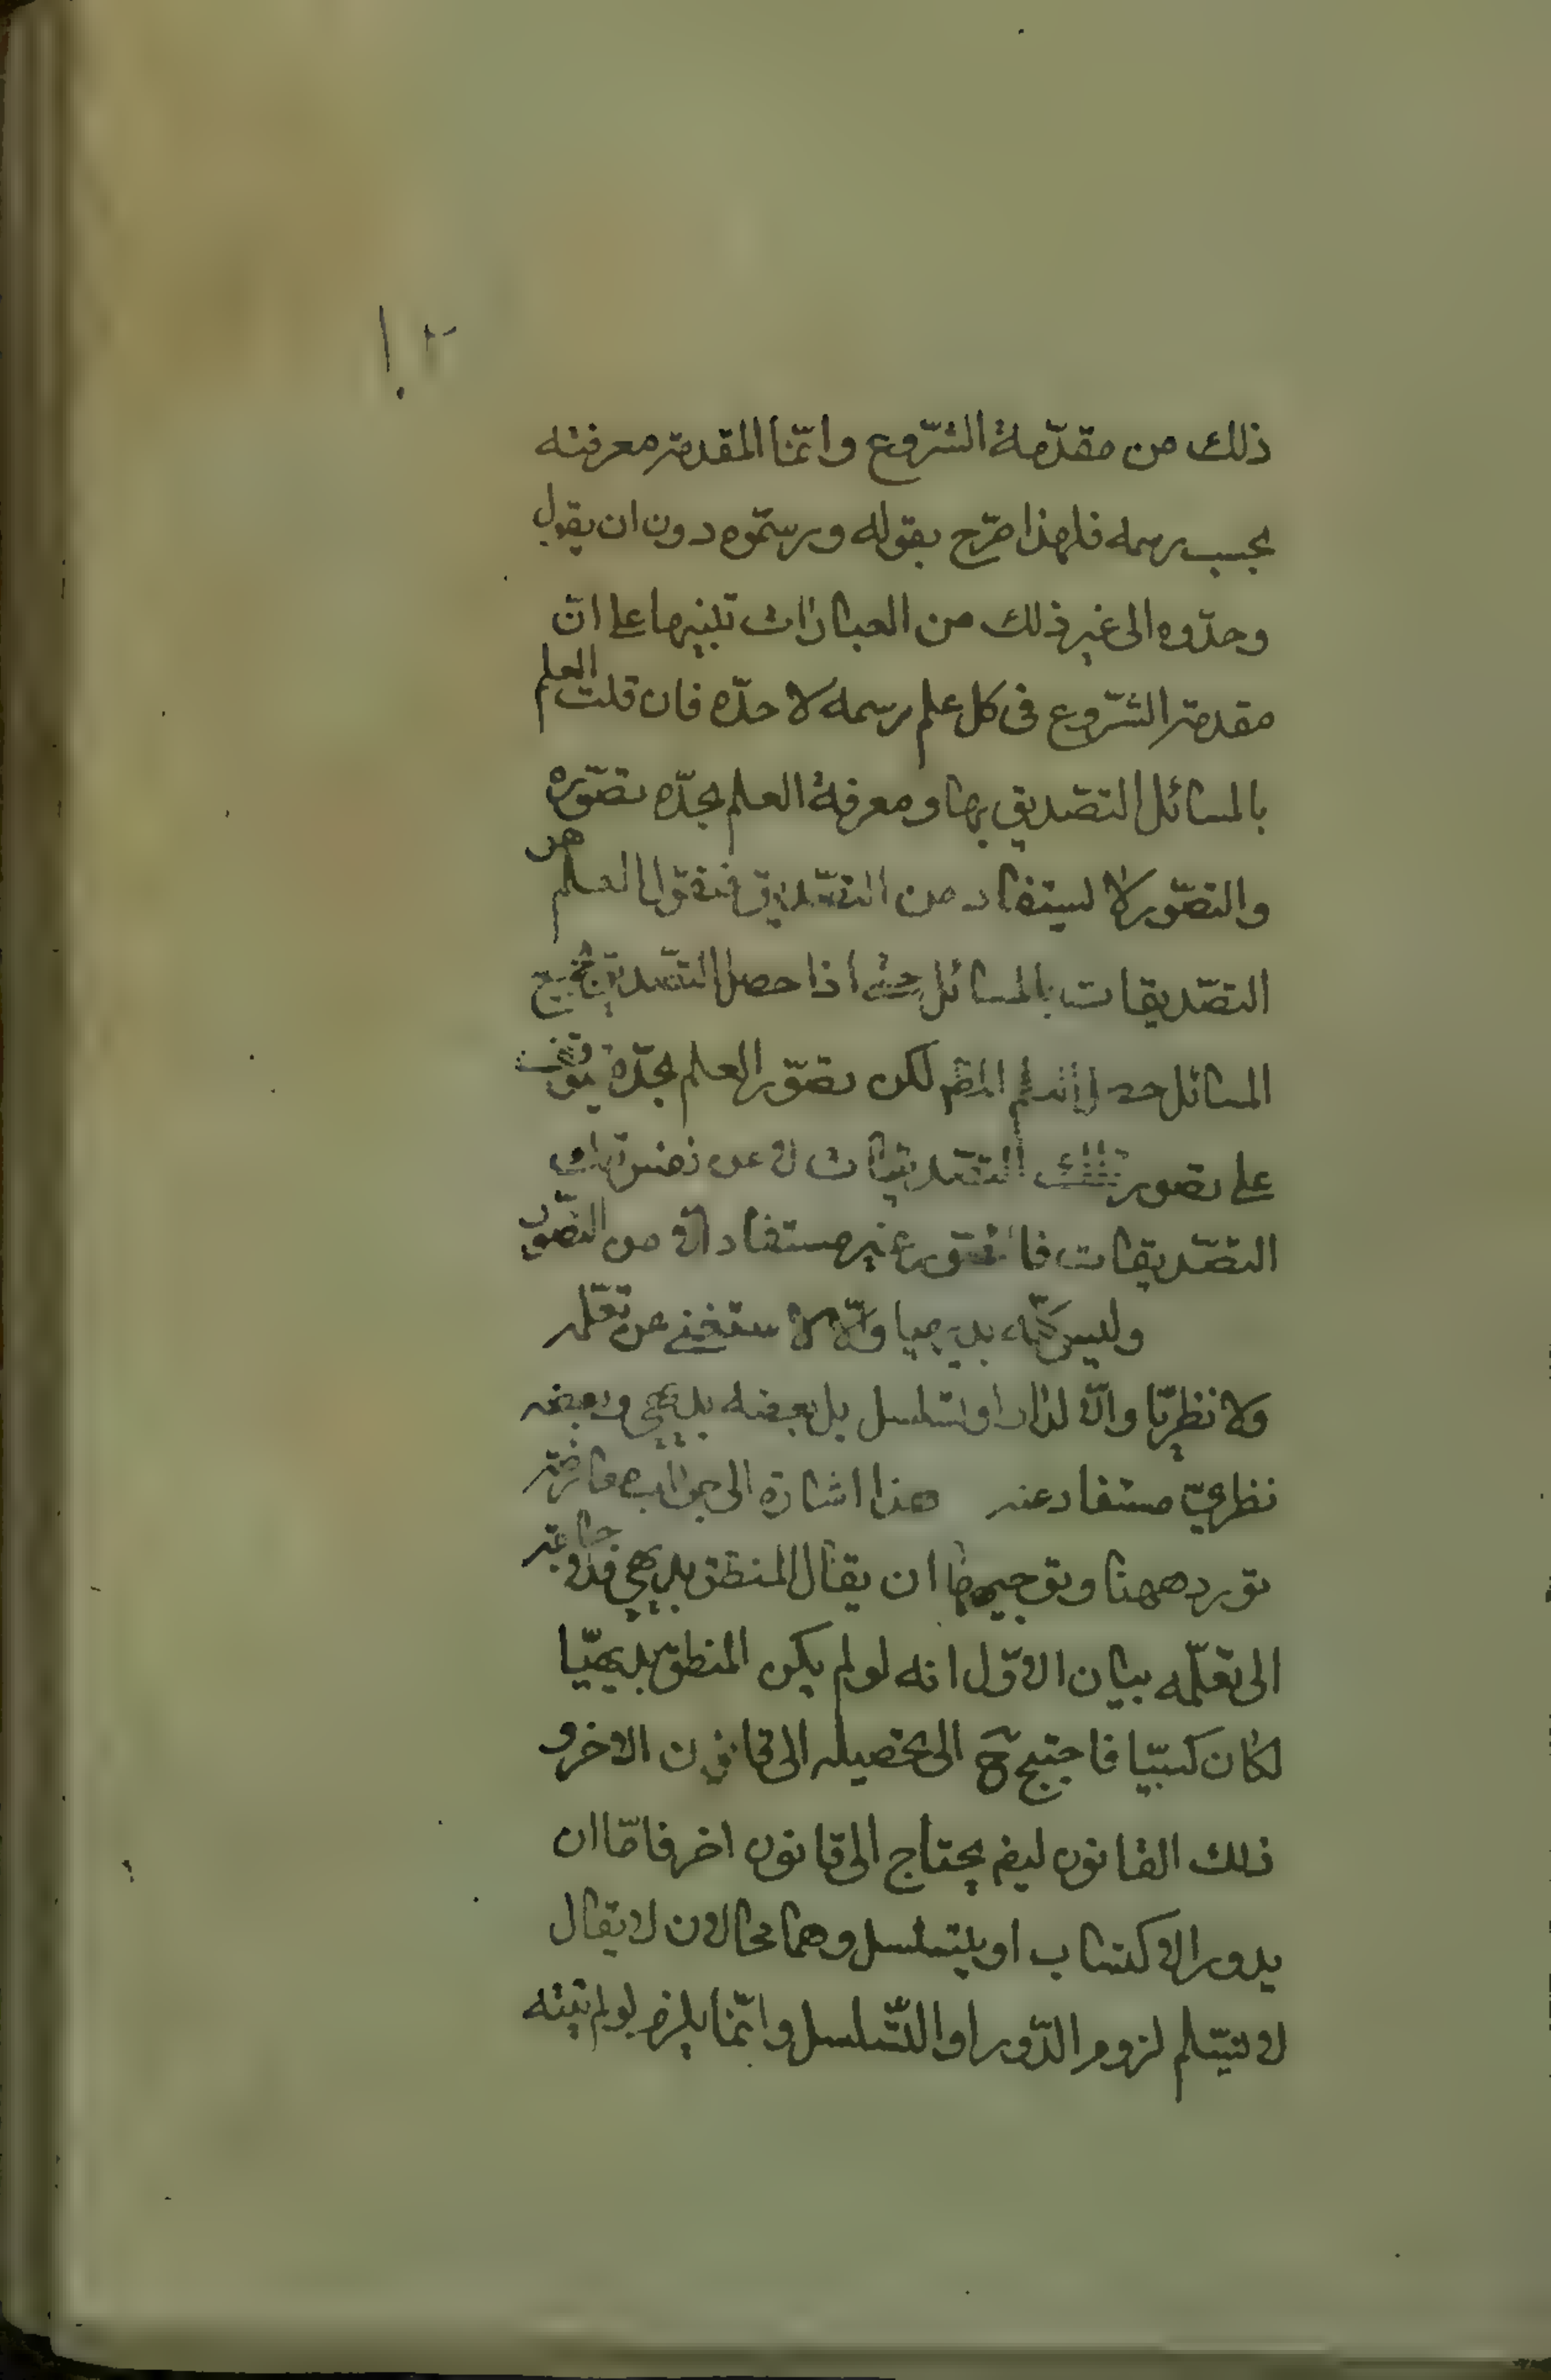 ذلك من مقدّمة الشّروع وانّما المقدمة معرفته
بحسب رسمه فلهذا صرّح بقوله ورسمّوه دون ان يقول
وحدّوه الى غير ذلك من العبارات تنبيها على انّ
مقدمة الشّروع فى كل علم رسمه لا حدّه فان قلت العلم
بالمسائل التصديق بها ومعرفة العلم بحدّه تصوّره
والتصوّر لا يستفاد من التصديق فنقول العلم هو
التصّديقات بالمسائل حتى اذا حصل التصّديق بجميع
المسائل حصل العلم المط لكن تصوّر العلم بحدّه يتوقف
على تصور تلك التصديقات لا على نفس تلك
التصّديقات فالتصور غير مستفاد الا من التصّور
وليس كلّه بديهيا والّا لاستغنى عن تعلّمه
ولا نظريّا والّا لدار او تسلسل بل بعضه بديهى وبعضه
نظرىّ مستفاد عنه هذا اشارة الى جواب معارضة
تورد ههنا وتوجيهها ان يقال المنطق بديهى فلا حاجة
الى تعلّمه بيان الاوّل انه لو لم يكن المنطق بديهيّا
لكان كسبيّا فاحتيج ح الى تحصيله الى قانون الاخر و
ذلك القانون ايض يحتاج الى قانون اخر فامّا ان
يدور الاكتساب او يتسلسل وهما محالان لا يقال
لا نسّلم لزوم الدّور او التّسلسل وانّما يلزم لو لم ينته